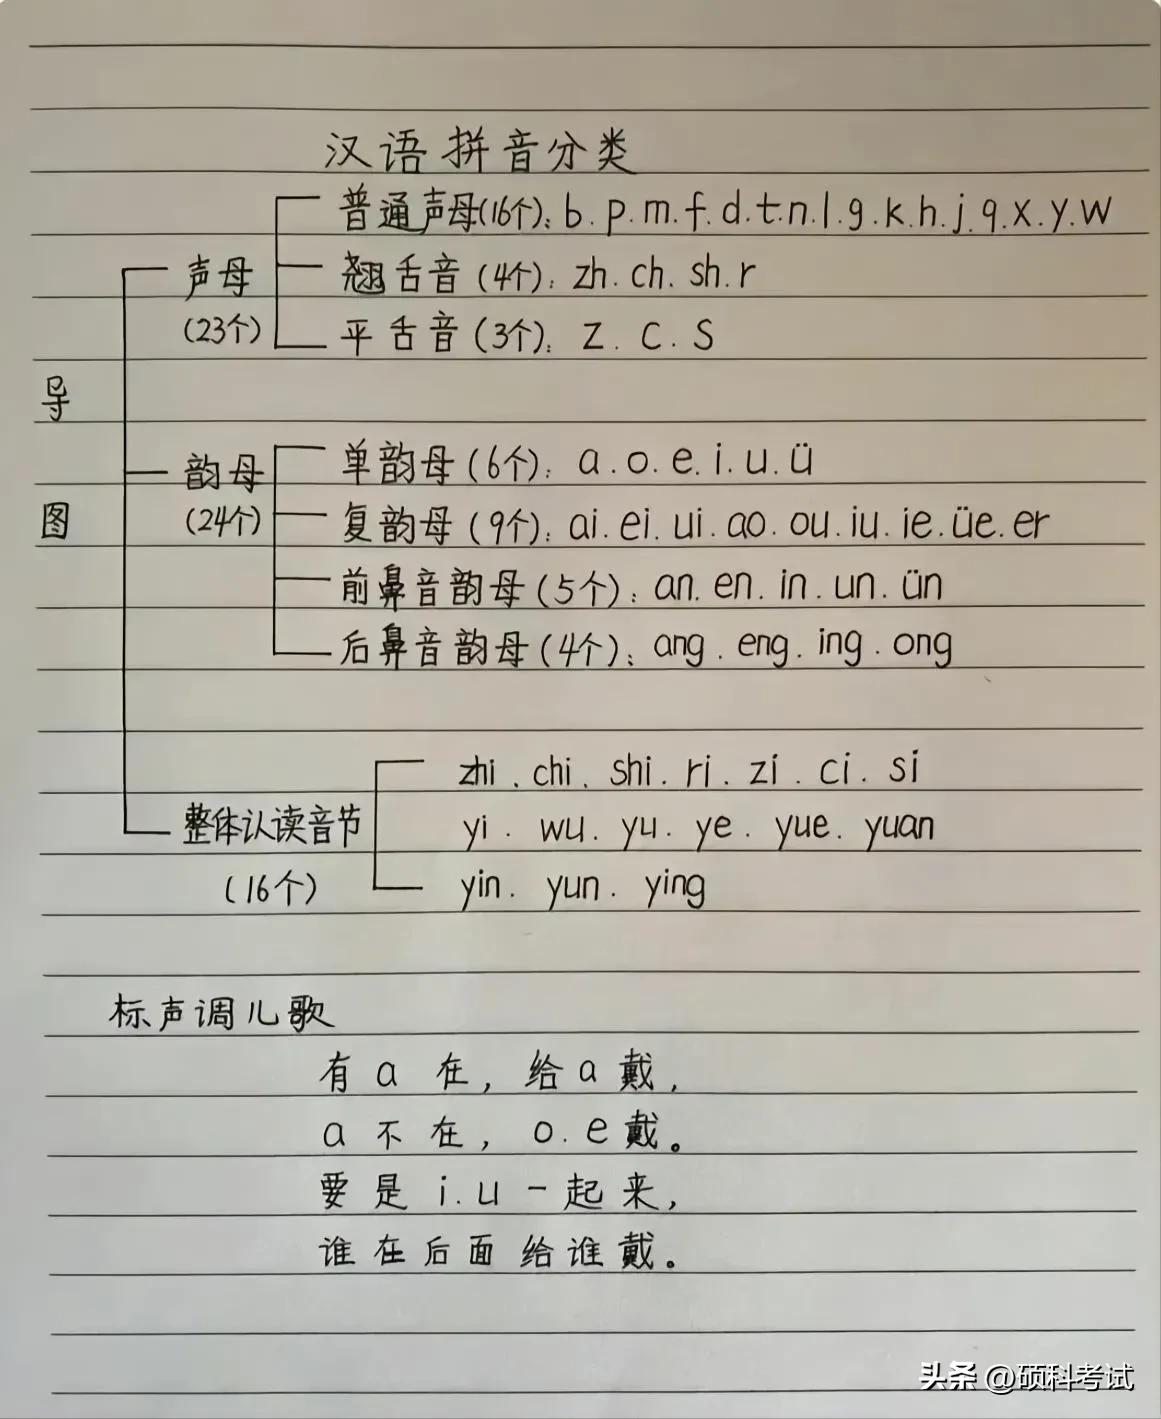 汉语拼音分类
普通声母(16个):b.p.m.f.d.t.n.l.g.k.h.j.q.x.y.w
声母
翘舌音(4个):zh.ch.sh.r
(23个)
平舌音(3个):z.c.s
导
韵母
单韵母(6个):a.o.e.i.u.ü
图
(24个)
复韵母(9个):ai.ei.ui.ao.ou.iu.ie.üe.er
前鼻音韵母(5个):an.en.in.un.ün
后鼻音韵母(4个):ang.eng.ing.ong
zhi.chi.shi.ri.zi.ci.si
整体认读音节
yi.wu.yu.ye.yue.yuan
(16个)
yin.yun.ying
标声调儿歌
有a在,给a戴,
a不在,o.e戴。
要是i.u一起来,
谁在后面给谁戴。
头条 @硕科考试